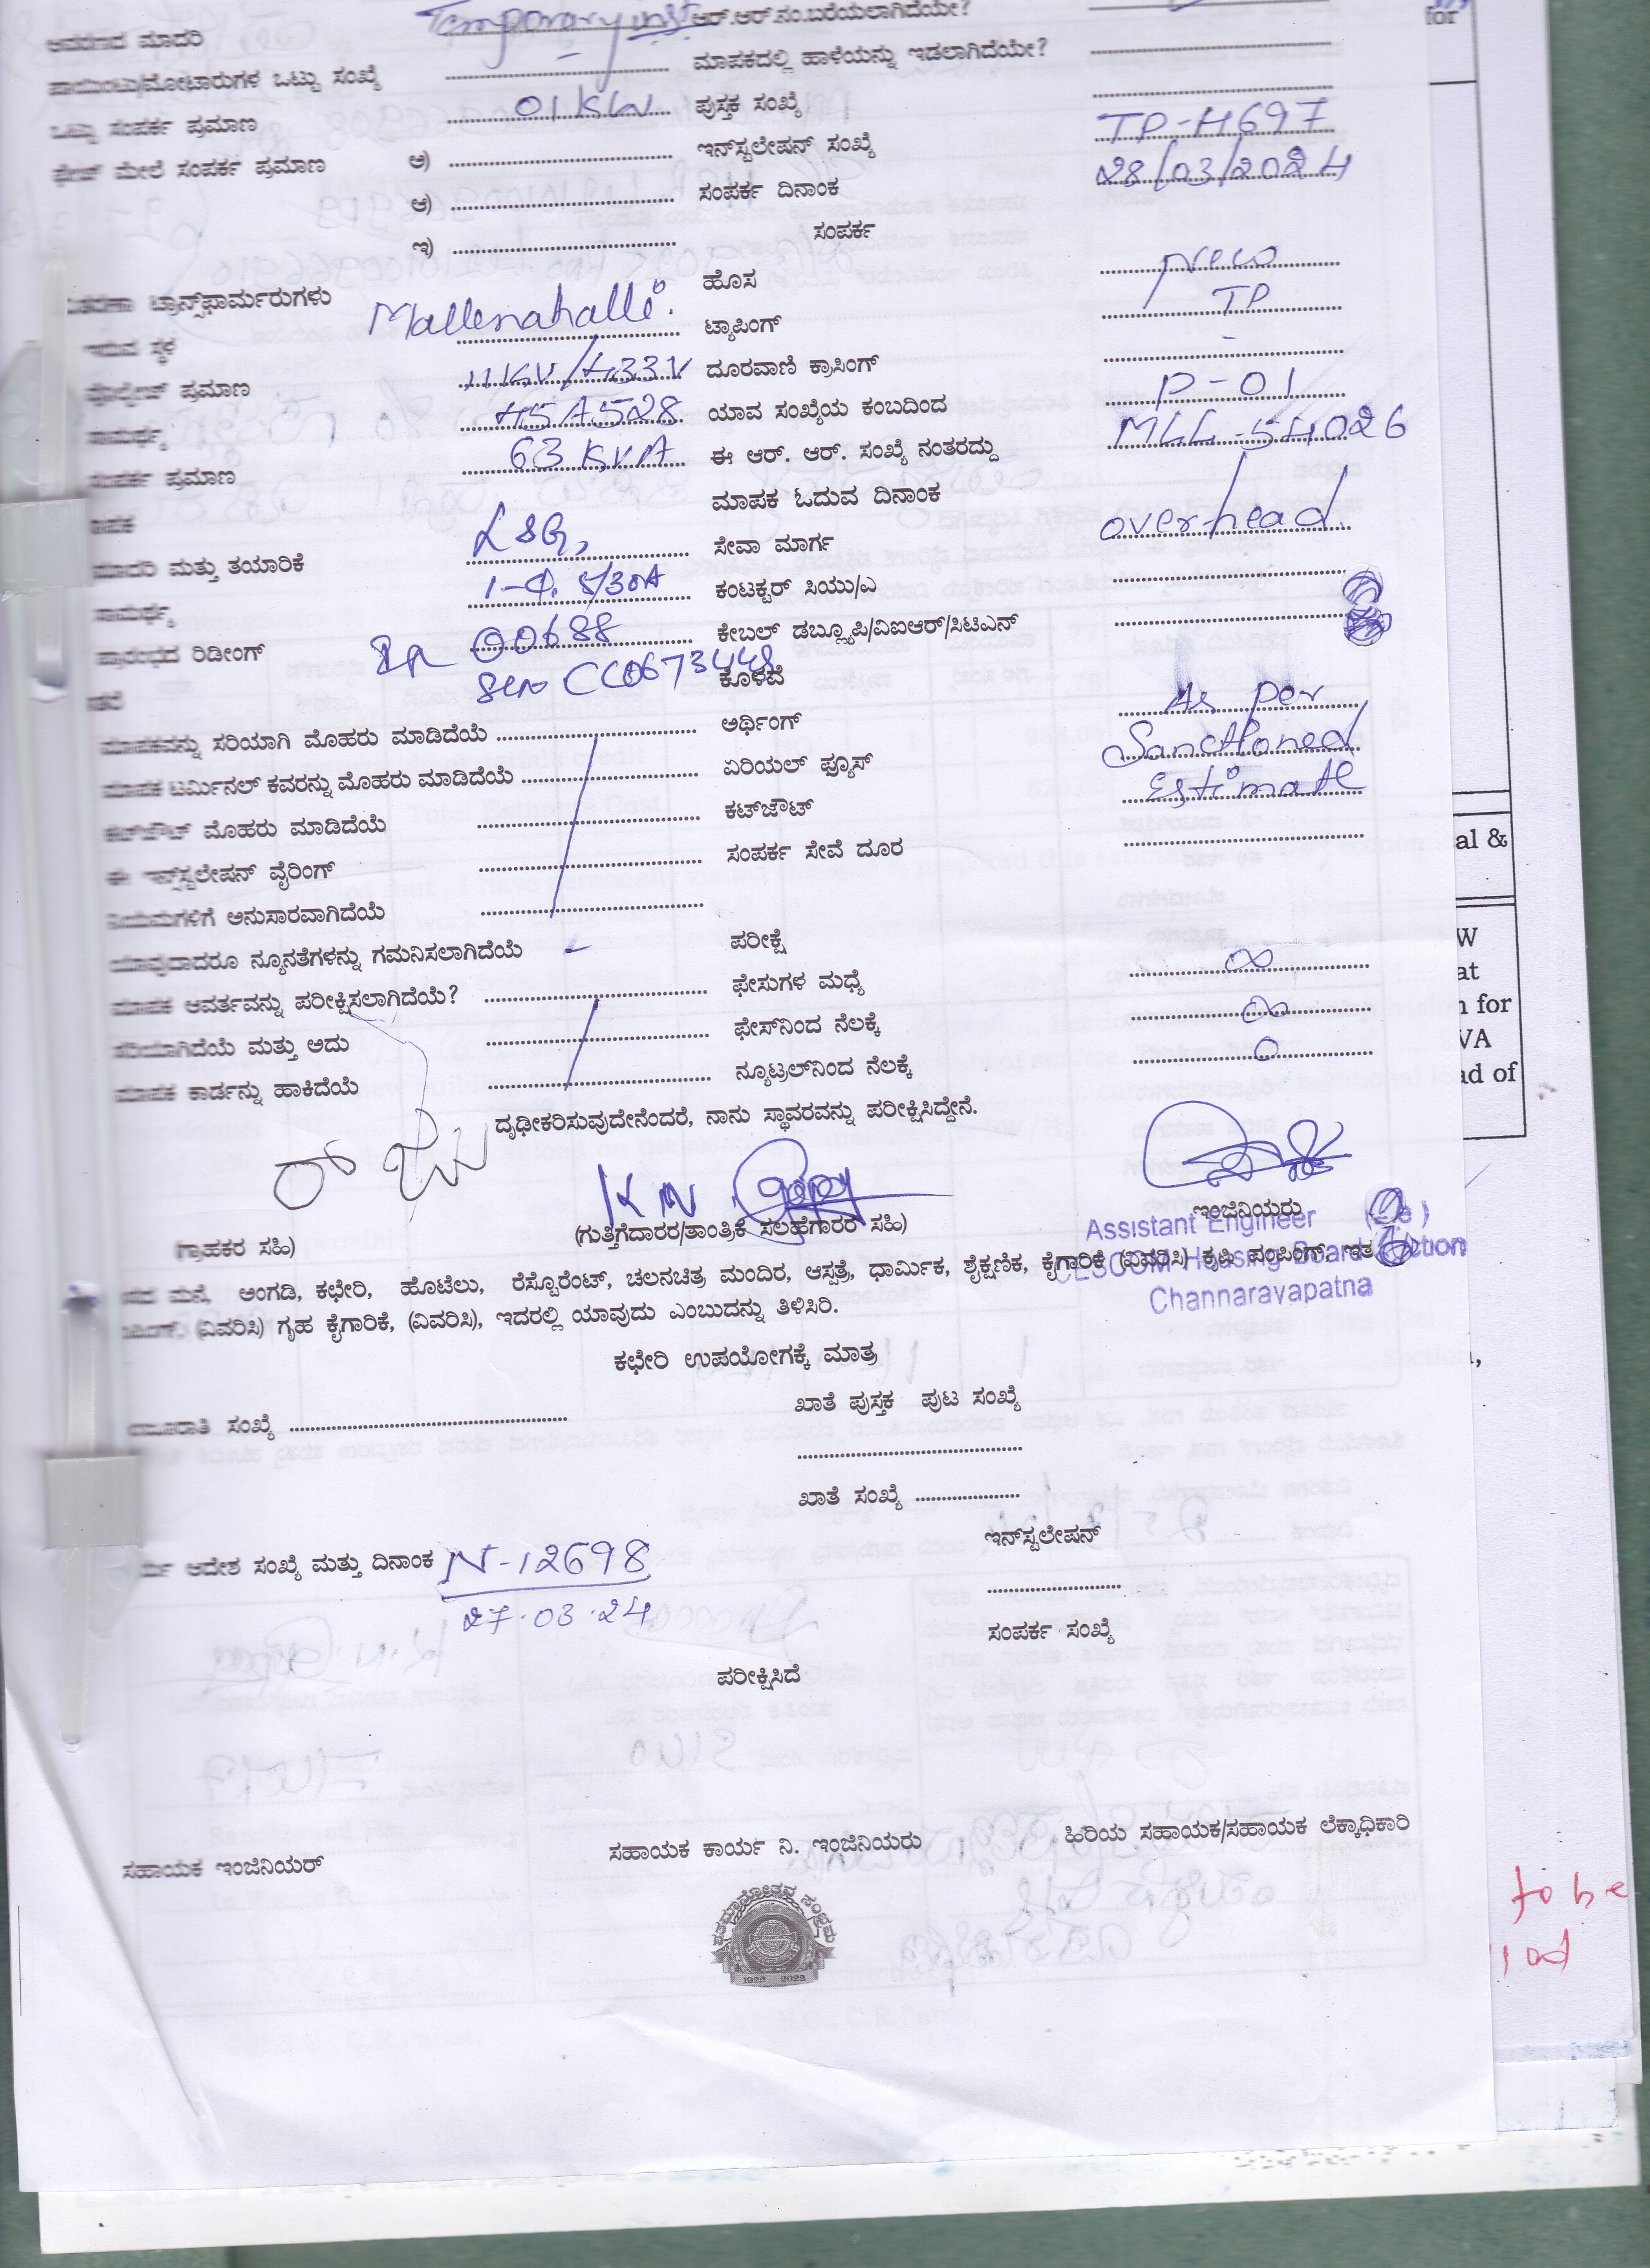 ಆವರಣದ ಮಾದರಿ Temporary inst ಆರ್.ಆರ್.ನಂ.ಬರೆಯಲಾಗಿದೆಯೇ?
ಪಾಯಿಂಟು/ಮೋಟಾರುಗಳ ಒಟ್ಟು ಸಂಖ್ಯೆ - ಮಾಪಕದಲ್ಲಿ ಹಾಳೆಯನ್ನು ಇಡಲಾಗಿದೆಯೇ?
ಒಟ್ಟು ಸಂಪರ್ಕ ಪ್ರಮಾಣ 01 KW ಪುಸ್ತಕ ಸಂಖ್ಯೆ
ಫೇಜ್ ಮೇಲೆ ಸಂಪರ್ಕ ಪ್ರಮಾಣ ಅ) ಇನ್‌ಸ್ಟಲೇಷನ್ ಸಂಖ್ಯೆ TP-4697
ಆ) ಸಂಪರ್ಕ ದಿನಾಂಕ 28/03/2024
ಇ) ಸಂಪರ್ಕ
ಟ್ರಾನ್ಸ್‌ಫಾರ್ಮರುಗಳು ಹೊಸ New
ಇರುವ ಸ್ಥಳ Mallenahalli. ಟ್ಯಾಪಿಂಗ್ TP
ವೋಲ್ಟೇಜ್ ಪ್ರಮಾಣ 11KV/433V ದೂರವಾಣಿ ಕ್ರಾಸಿಂಗ್ -
ಸಾಮರ್ಥ್ಯ 45A528 ಯಾವ ಸಂಖ್ಯೆಯ ಕಂಬದಿಂದ P-01
ಸಂಪರ್ಕ ಪ್ರಮಾಣ 63 KVA ಈ ಆರ್. ಆರ್. ಸಂಖ್ಯೆ ನಂತರದ್ದು MLL-54026
ಮಾಪಕ ಮಾಪಕ ಓದುವ ದಿನಾಂಕ
ಮಾದರಿ ಮತ್ತು ತಯಾರಿಕೆ L&G, ಸೇವಾ ಮಾರ್ಗ overhead
ಸಾಮರ್ಥ್ಯ 1-Φ. 5/30A ಕಂಟಕ್ಟರ್ ಸಿಯು/ಎ
ಪ್ರಾರಂಭದ ರಿಡೀಂಗ್ IR 00688 ಕೇಬಲ್ ಡಬ್ಲ್ಯೂಪಿ/ವಿಐಆರ್/ಸಿಟಿಎನ್
Slno CC0673448 ಕೊಳವೆ
ಮಾಪಕವನ್ನು ಸರಿಯಾಗಿ ಮೊಹರು ಮಾಡಿದೆಯೆ ಅರ್ಥಿಂಗ್ As per
ಮಾಪಕ ಟರ್ಮಿನಲ್ ಕವರನ್ನು ಮೊಹರು ಮಾಡಿದೆಯೆ ಏರಿಯಲ್ ಫ್ಯೂಸ್ Sanctioned
ಕಟ್‌ಔಟ್ ಮೊಹರು ಮಾಡಿದೆಯೆ ಕಟ್‌ಔಟ್ Estimate
ಈ ಇನ್‌ಸ್ಟಲೇಷನ್ ವೈರಿಂಗ್ ಸಂಪರ್ಕ ಸೇವೆ ದೂರ
ನಿಯಮಗಳಿಗೆ ಅನುಸಾರವಾಗಿದೆಯೆ
ಯಾವುದಾದರೂ ನ್ಯೂನತೆಗಳನ್ನು ಗಮನಿಸಲಾಗಿದೆಯೆ - ಪರೀಕ್ಷೆ
ಮಾಪಕ ಆವರ್ತವನ್ನು ಪರೀಕ್ಷಿಸಲಾಗಿದೆಯೆ? ಫೇಸುಗಳ ಮಧ್ಯೆ ∞
ಸರಿಯಾಗಿದೆಯೆ ಮತ್ತು ಅದು ಫೇಸ್‌ನಿಂದ ನೆಲಕ್ಕೆ ∞
ಮಾಪಕ ಕಾರ್ಡನ್ನು ಹಾಕಿದೆಯೆ ನ್ಯೂಟ್ರಲ್‌ನಿಂದ ನೆಲಕ್ಕೆ 0
ದೃಢೀಕರಿಸುವುದೇನೆಂದರೆ, ನಾನು ಸ್ಥಾವರವನ್ನು ಪರೀಕ್ಷಿಸಿದ್ದೇನೆ.
K N
(ಗ್ರಾಹಕರ ಸಹಿ) (ಗುತ್ತಿಗೆದಾರರ/ತಾಂತ್ರಿಕ ಸಲಹೆಗಾರರ ಸಹಿ) ಇಂಜಿನಿಯರು
Assistant Engineer (Ele)
CESCOM Housing Board Section
Channaravapatna
ಮನೆ, ಅಂಗಡಿ, ಕಛೇರಿ, ಹೊಟೆಲು, ರೆಸ್ಟೊರೆಂಟ್, ಚಲನಚಿತ್ರ ಮಂದಿರ, ಆಸ್ಪತ್ರೆ, ಧಾರ್ಮಿಕ, ಶೈಕ್ಷಣಿಕ, ಕೈಗಾರಿಕೆ (ವಿವರಿಸಿ) ಕೃಷಿ ಪಂಪಿಂಗ್, ಇತರ
(ವಿವರಿಸಿ) ಗೃಹ ಕೈಗಾರಿಕೆ, (ವಿವರಿಸಿ), ಇದರಲ್ಲಿ ಯಾವುದು ಎಂಬುದನ್ನು ತಿಳಿಸಿರಿ.
ಕಛೇರಿ ಉಪಯೋಗಕ್ಕೆ ಮಾತ್ರ
ಸಂಖ್ಯೆ ಖಾತೆ ಪುಸ್ತಕ ಪುಟ ಸಂಖ್ಯೆ
ಖಾತೆ ಸಂಖ್ಯೆ
ಇನ್‌ಸ್ಟಲೇಷನ್
ಆದೇಶ ಸಂಖ್ಯೆ ಮತ್ತು ದಿನಾಂಕ N-12698
27.03.24
ಸಂಪರ್ಕ ಸಂಖ್ಯೆ
ಪರೀಕ್ಷಿಸಿದೆ
ಸಹಾಯಕ ಇಂಜಿನಿಯರ್ ಸಹಾಯಕ ಕಾರ್ಯ ನಿ. ಇಂಜಿನಿಯರು ಹಿರಿಯ ಸಹಾಯಕ/ಸಹಾಯಕ ಲೆಕ್ಕಾಧಿಕಾರಿ
1922 - 2022
for
al &
W
at
n for
VA
ad of
to be